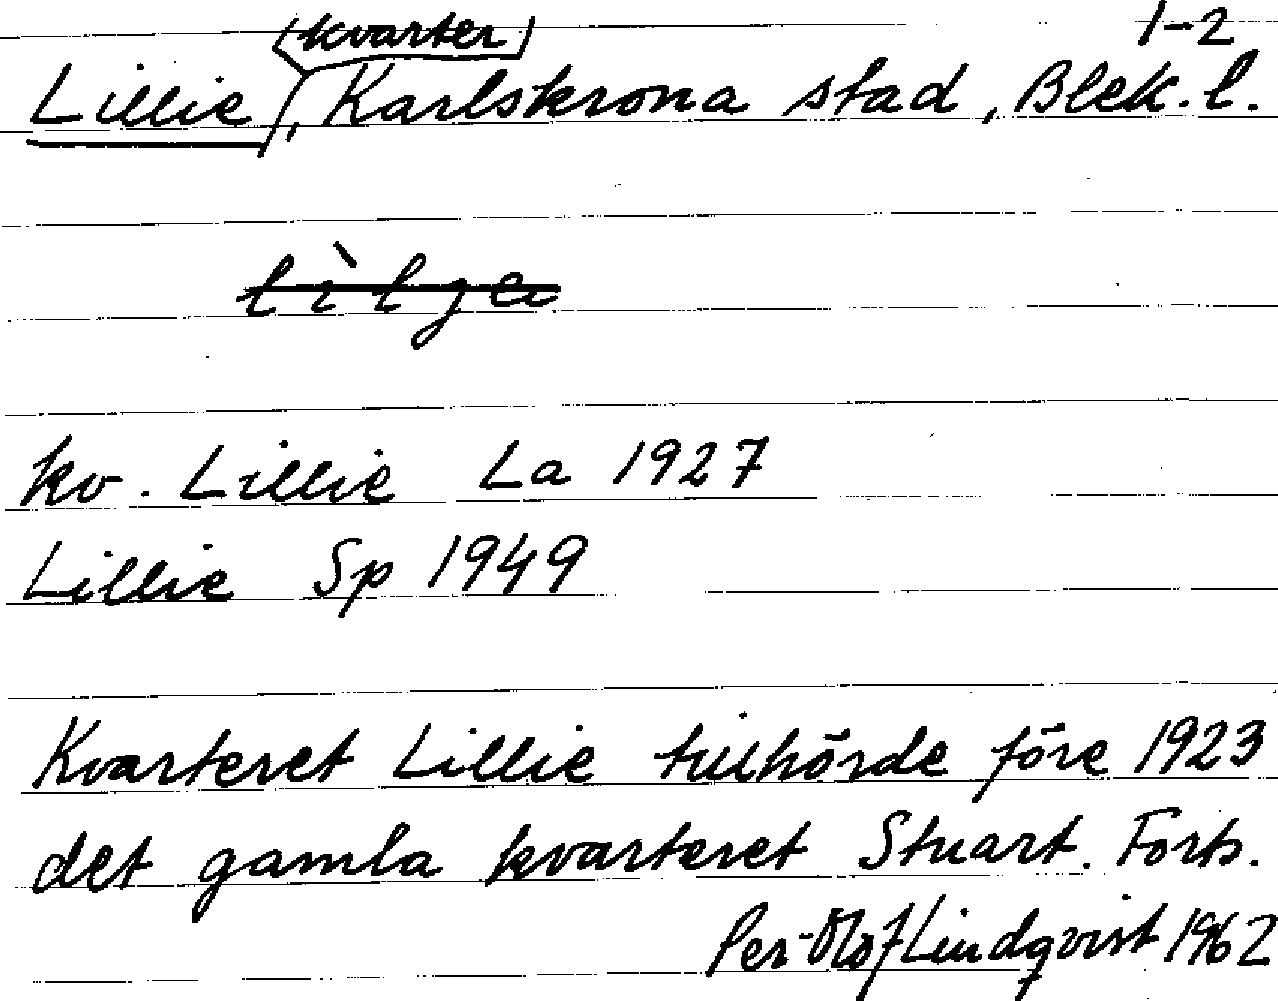 1-2
(kvarter)
Lillie, Karlskrona stad, Blek. l.
lìlje
kv. Lillie La 1927
Lillie Sp 1949
Kvarteret Lillie tillhörde före 1923
det gamla kvarteret Stuart. Forts.
Per-Olof Lindqvist 1962